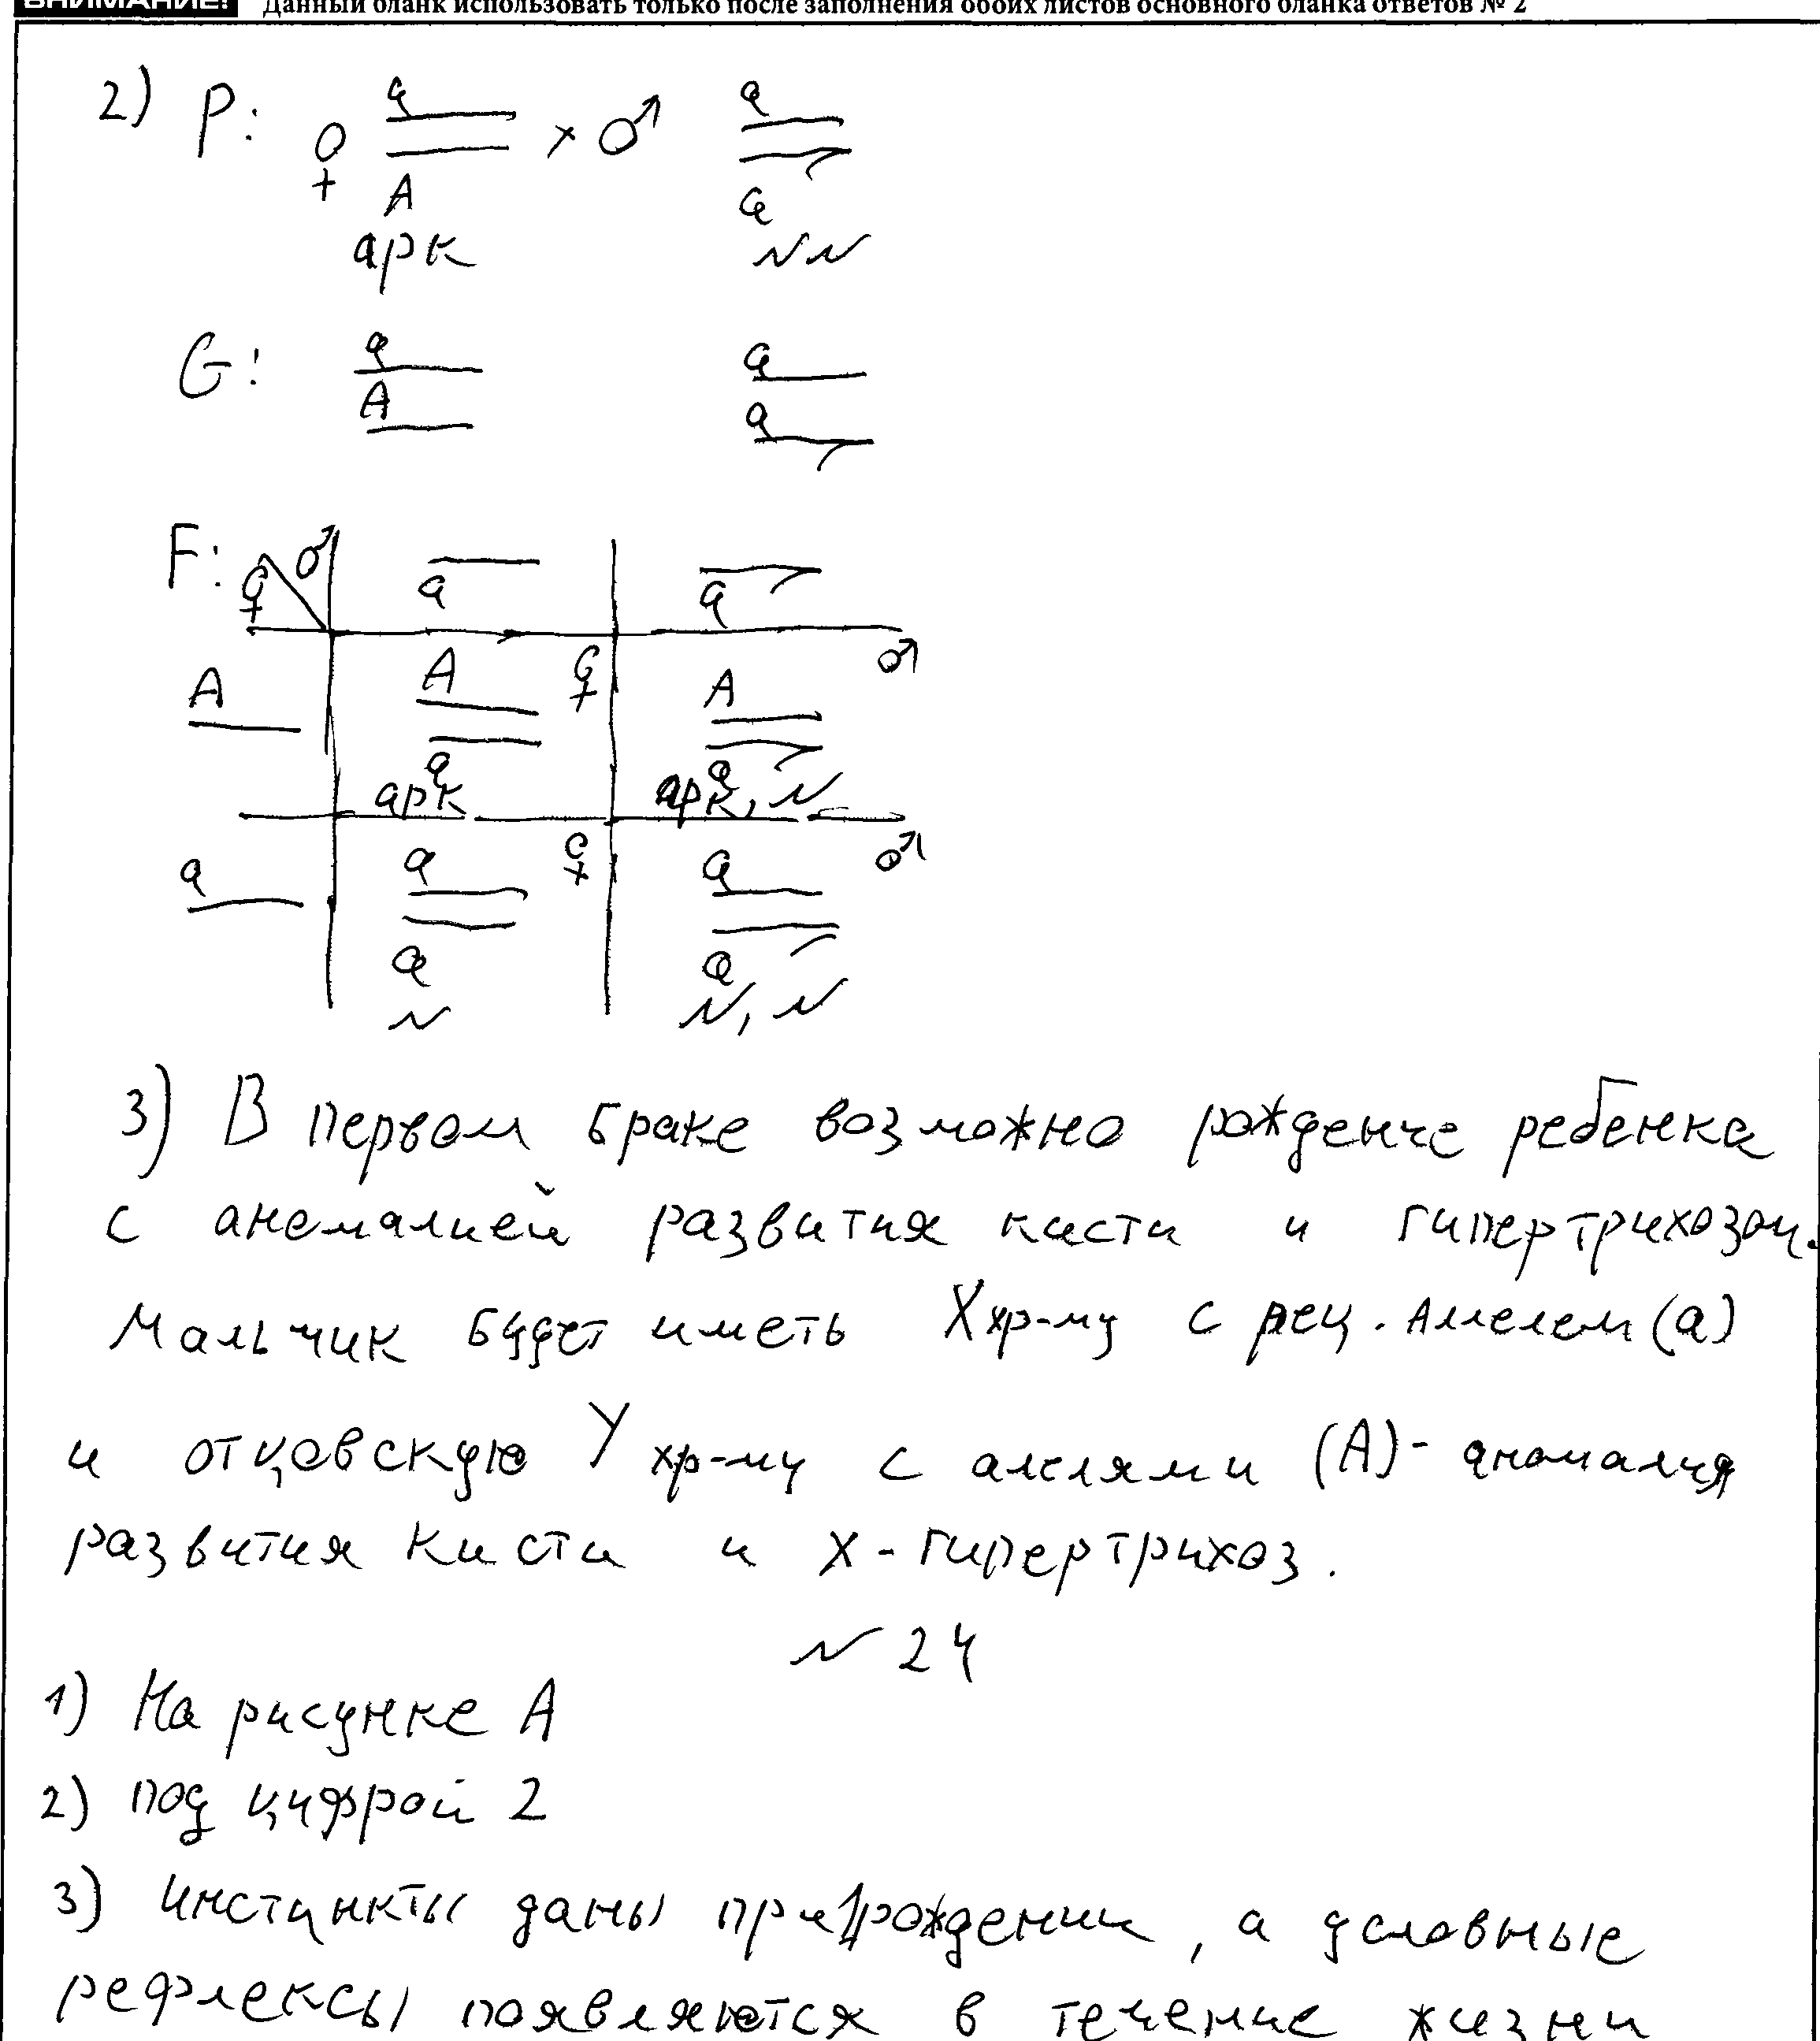 ВНИМАНИЕ! Данный бланк использовать только после заполнения обоих листов основного бланка ответов № 2
2) P: ♀ a × ♂ a
A a
арк NN
G: a a
A a
F: ♀ ♂ a a
♀ ♂
A A A
a a
арк арк, N
♀ ♂
a a a
a a
N N, N
3) В первом браке возможно рождение ребенка
с аномалией развития кисти и гипертрихозом.
Мальчик будет иметь X хр-му с рец. Аллелем (a)
и отцовскую Y хр-му с алелями (A) - аномалия
развития кисти и X - гипертрихоз.
N 24
1) На рисунке А
2) под цифрой 2
3) инстинкты даны при рождении, а условные
рефлексы появляются в течение жизни